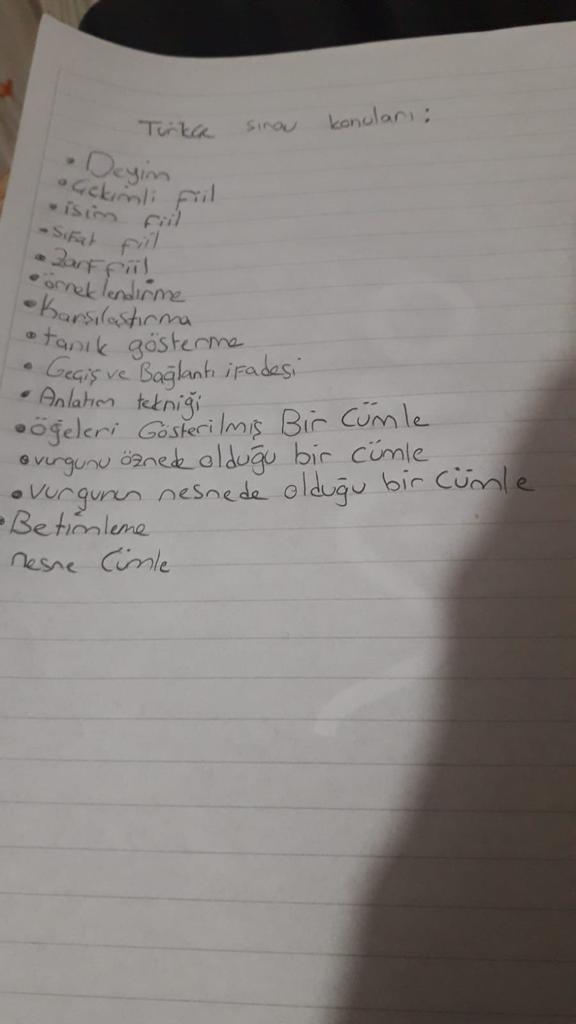 Türkçe sınav konuları:
• Deyim
• Çekimli fiil
• isim fiil
• Sıfat fiil
• Zarf fiil
• örneklendirme
• Karşılaştırma
• tanık gösterme
• Geçiş ve Bağlantı ifadesi
• Anlatım tekniği
• Öğeleri Gösterilmiş Bir Cümle
• vurgunu öznede olduğu bir cümle
• Vurgunun nesnede olduğu bir Cümle
• Betimleme
nesne Cümle